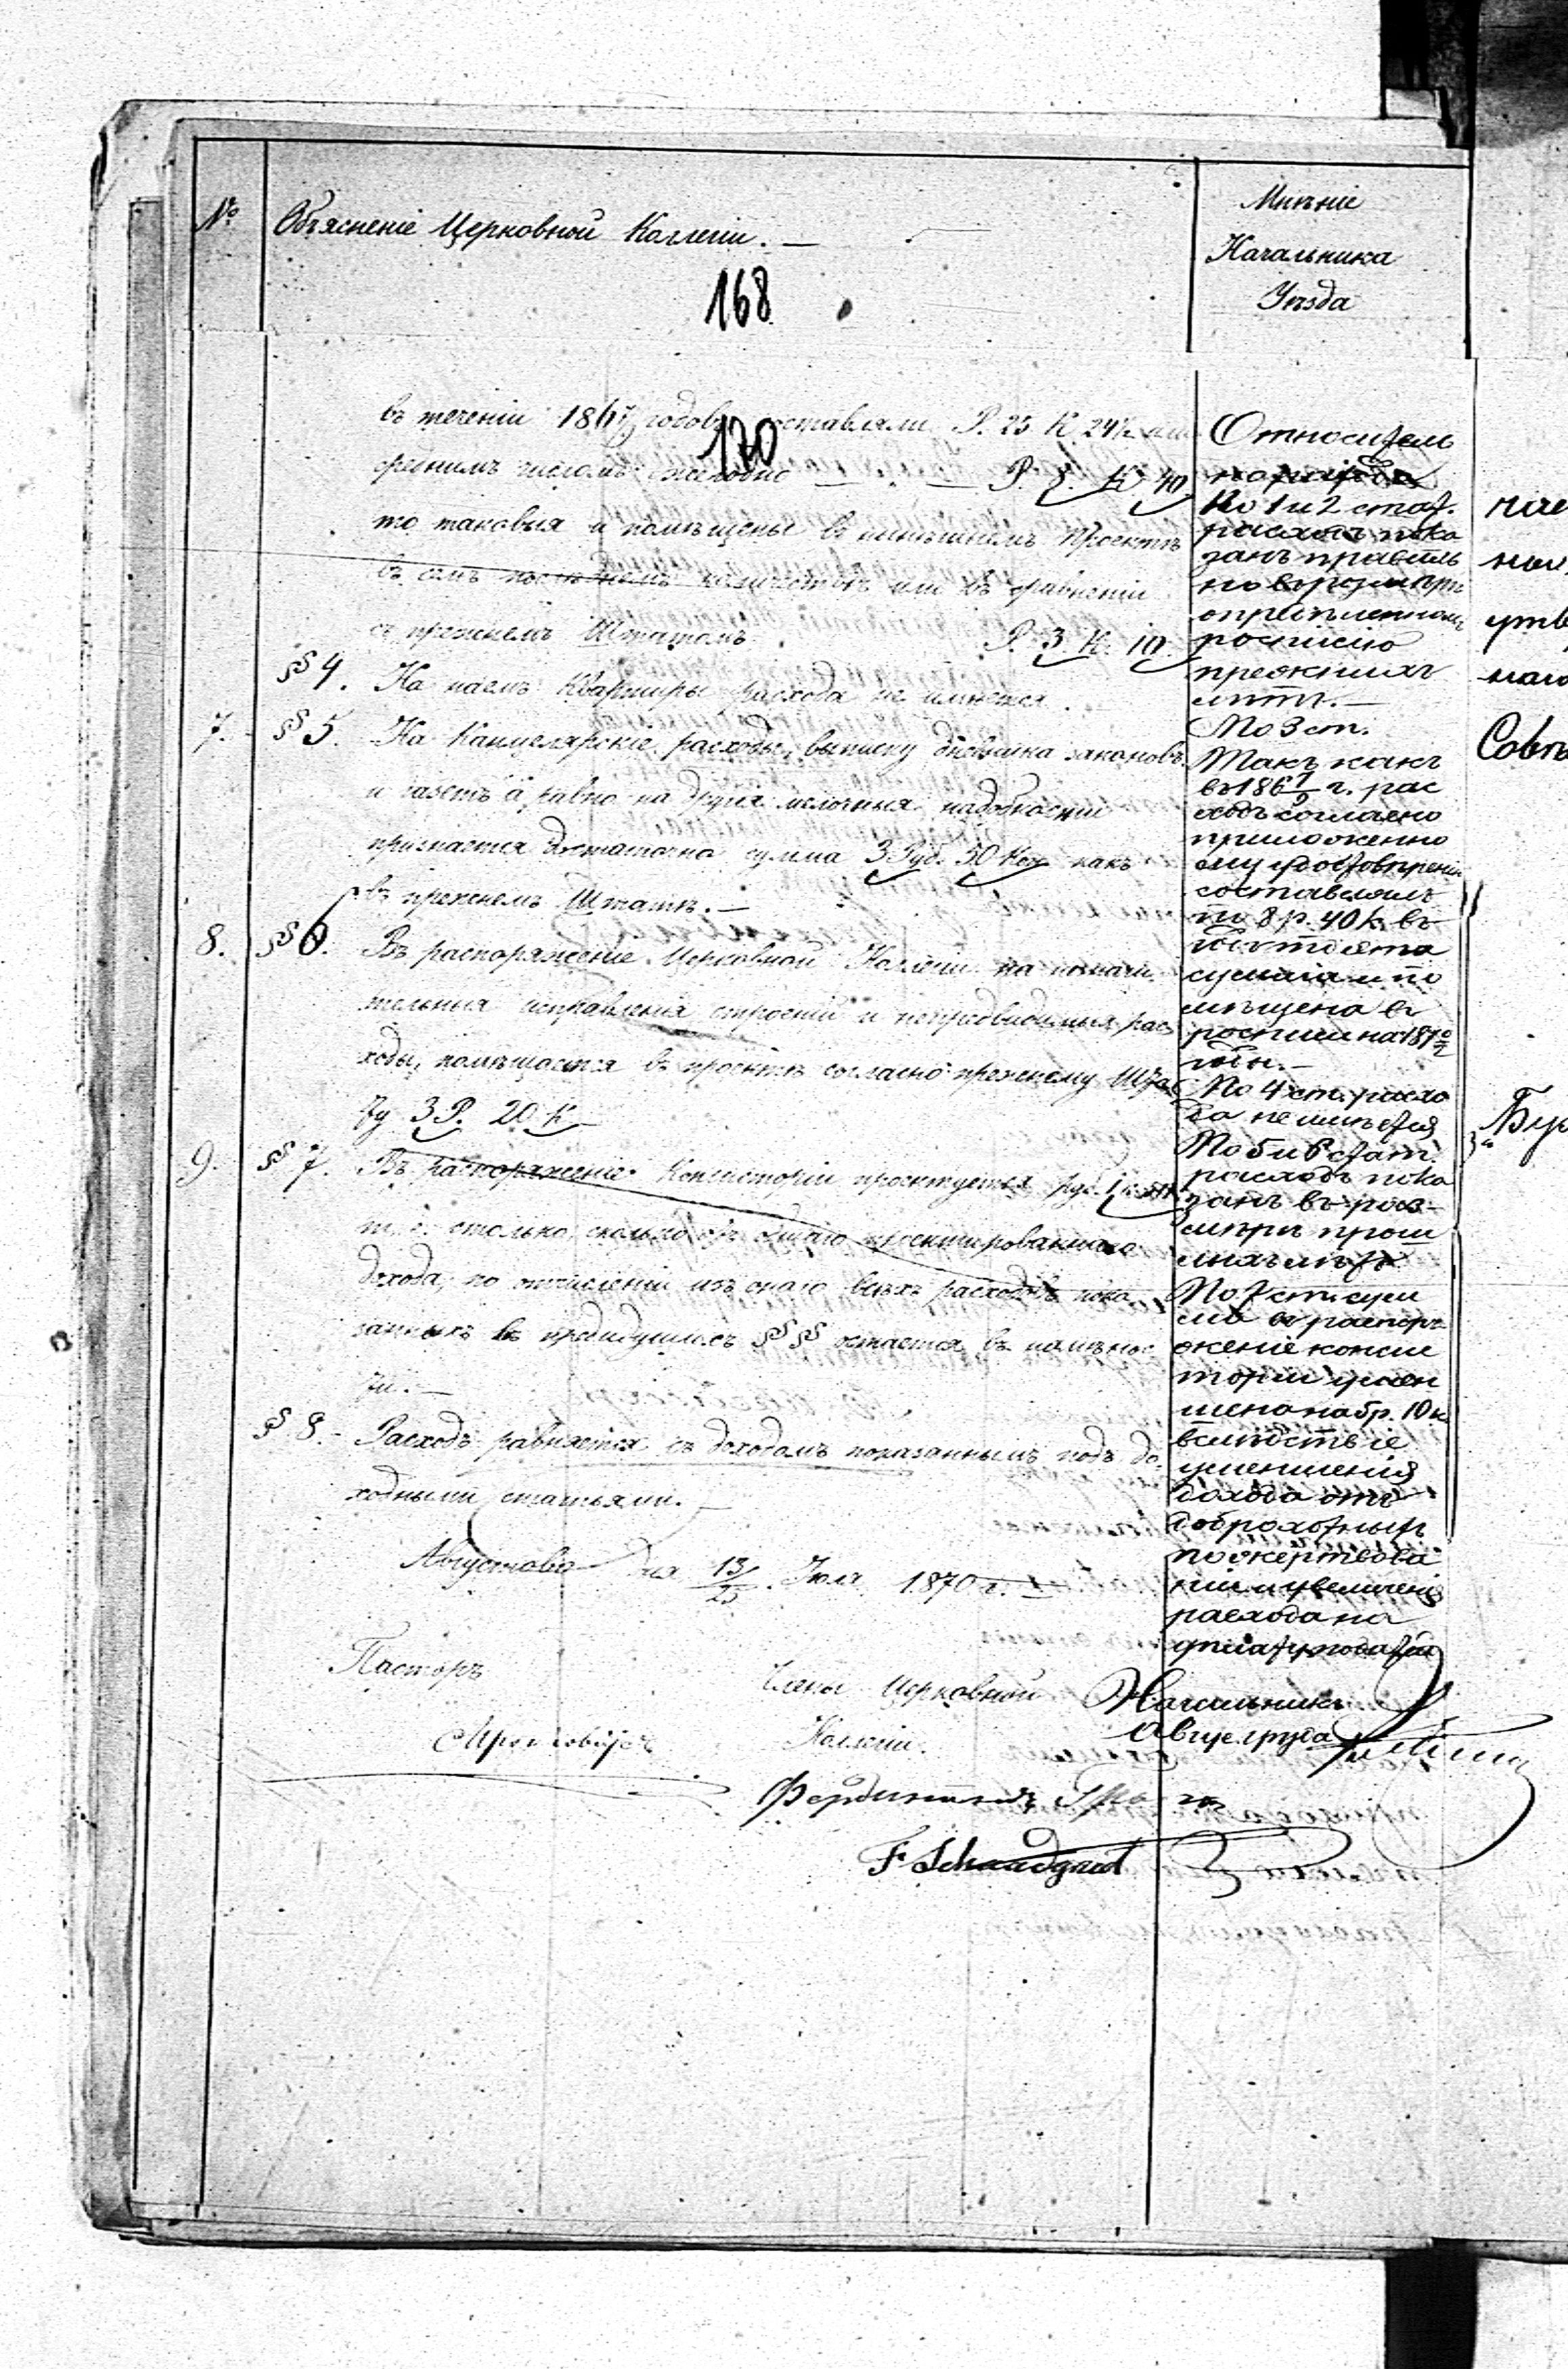 №
Объясненіе Церковной Коллегіи. —
Мнѣніе
Начальника
Уѣзда
168
170
въ теченіи 1867/9 годовъ составляли Р. 25 К. 24½ или
среднимъ числомъ ежегодно — „ — Р. 8. К. 40
то таковыя и помѣщены въ нынѣшнемъ Проектѣ
въ семъ количествѣ или въ сравненіи
съ прежнемъ Штатомъ Р. 3 К. 10.
§§ 4. На наемъ Квартиры расхода не имѣется.
7. §§ 5. На Канцелярскіе расходы, выписку дневника законовъ
и газетъ а равно на другія мелочныя надобности
признается достаточна сумма 3 Руб. 50 Коп какъ
въ прежнемъ Штатѣ. —
8. §§ 6. Въ распоряженіе Церковной Коллегіи на незначи
тельныя исправленія строеній и непредвидимыя рас
ходы, помѣщается въ проектѣ согласно прежнему Шта
ту 3 Р. 20 К
9. §§ 7. Въ распоряженіе Консисторіи проектуется руб. 1
т. е. столько сколько отъ общаго проектированнаго
дохода, по отчисленіи изъ онаго всѣхъ расходовъ пока
занныхъ въ предидущихъ §§ остается въ наличнос
ти. —
§ 8. — Расходъ равняется съ доходомъ показаннымъ подъ до
ходными статьями. —
Августово дня 13/25 Іюля 1870 г.
Пасторъ
Члены Церковной
Коллегіи.
Фердинандъ
F
Относитель
но расхода
По 1 и 2 стат.
расходъ пока
занъ правиль
но въ размѣрѣ
опредѣленномъ
росписью
прежнихъ
лѣтъ. —
По 3 ст.
Такъ какъ
въ 1867/9 г. рас
ходъ согласно
приложенно
му удостовѣренію
составлялъ
по 8 р. 40 к. въ
годъ то эта
сумма и по
мѣщена въ
росписи на 1870/2
годы. —
По 4 ст. расхо
да не имѣется
По 5 и 6 стат.
расходъ пока
занъ въ раз-
мѣрѣ прош
лыхъ лѣтъ
По 7 ст. сум
ма въ распоря
женіе консис
торіи умен
шена на 6 р. 10 к
вслѣдствіе
уменшенія
дохода отъ
доброхотныхъ
пожертвова
ній и увеличенія
расхода на
уплату податей
Начальникъ
Август. уѣзда